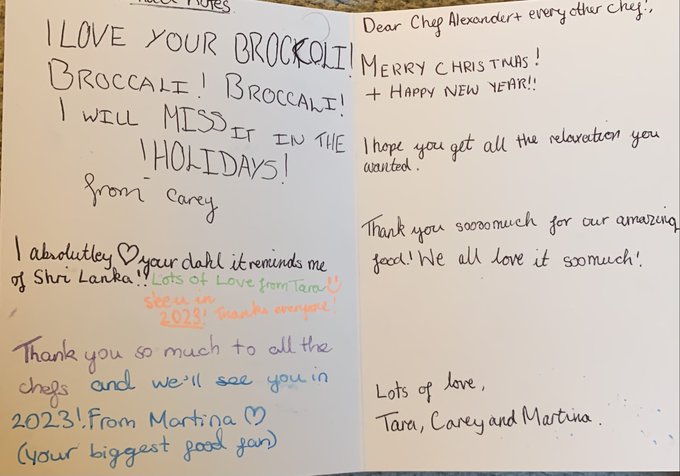 Notes.
I LOVE YOUR BROCKOLI!
BROCCALI! BROCCALI!
I WILL MISS IT IN THE
HOLIDAYS!
from Carey
I absolutley ♡ your dahl it reminds me
of Shri Lanka!! Lots of Love from Tara
see u in
2023! Thanks everyone!
Thank you so much to all the
chefs and we'll see you in
2023! From Martina ♡
(your biggest food fan)
Dear Chef Alexander + every other chef!,
MERRY CHRISTMAS!
+ HAPPY NEW YEAR!!
I hope you get all the relaxation you
wanted.
Thank you soooomuch for our amazing
food! We all love it soomuch!
Lots of love,
Tara, Carey and Martina.